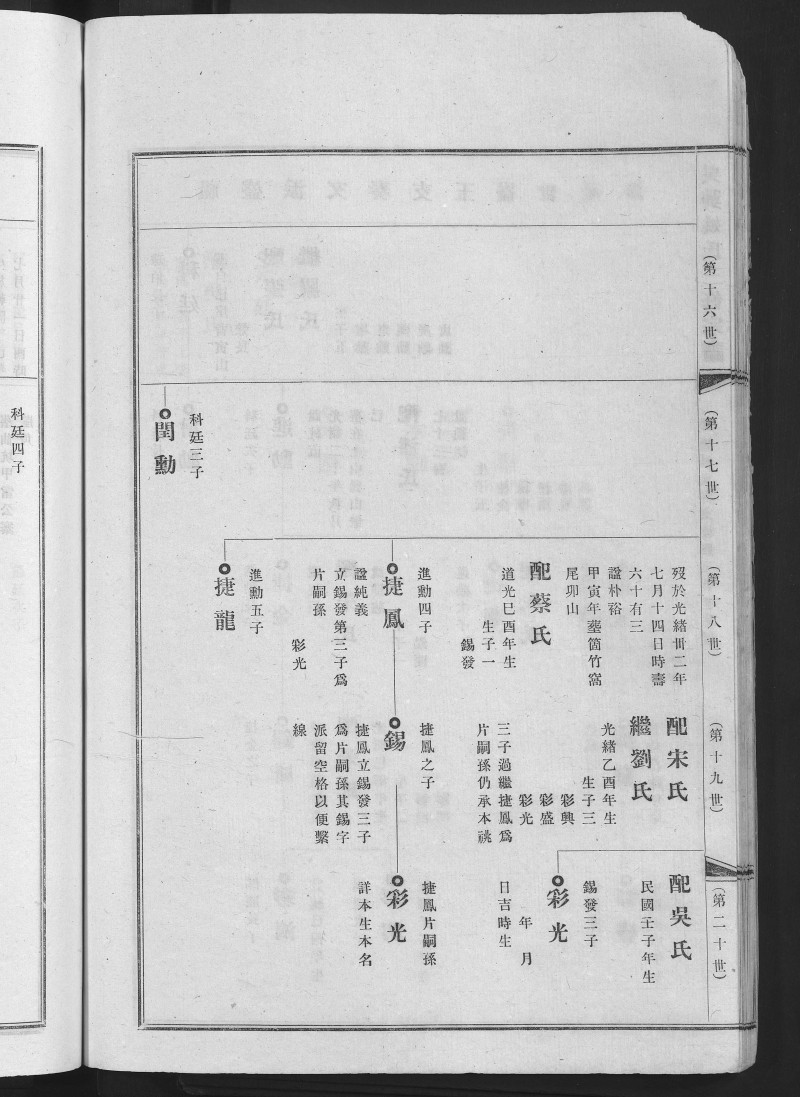 (第十六世)
(第十七世)
科廷三子
閏勳
(第十八世)
歿於光緒丗二年
七月十四日時壽
六十有三
諡朴裕
甲寅年塟箇竹窩
尾卯山
配蔡氏
道光巳酉年生
生子一
錫發
進勳四子
捷鳳
諡純義
立錫發第三子爲
片嗣孫
彩光
進勳五子
捷龍
(第十九世)
配宋氏
繼劉氏
光緒乙酉年生
生子三
彩興
彩盛
彩光
三子過繼捷鳳爲
片嗣孫仍承本祧
捷鳳之子
錫
捷鳳立錫發三子
爲片嗣孫其錫字
派留空格以便繫
線
(第二十世)
配吳氏
民國壬子年生
錫發三子
彩光
年 月
日吉時生
捷鳳片嗣孫
彩光
詳本生本名
科廷四子